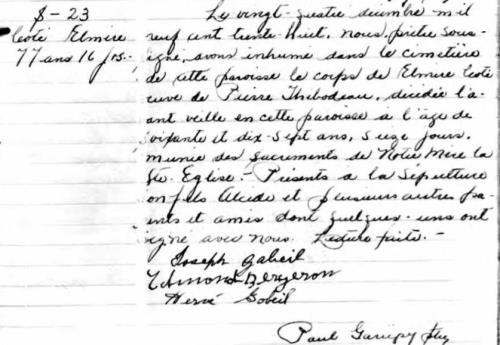 S - 23
Côté Elmire
77 ans 16 jrs.
Le vingt-quatre décembre mil
neuf cent trente huit, nous, prêtre sous-
signé, avons inhumé dans le cimetière
de cette paroisse le corps de Elmire Côté
veuve de Pierre Thibodeau, décédée l'a-
vant veille en cette paroisse à l'âge de
soixante et dix-sept ans, seize jours,
munie des sacrements de Notre Mère la
Ste. Eglise. - Présents à la sépulture
son fils Alcide et plusieurs autres pa-
rents et amis dont quelques-uns ont
signé avec nous. Lecture faite. -
Joseph Gobeil
Edmond Bergeron
Hervé Gobeil
Paul Gariépy